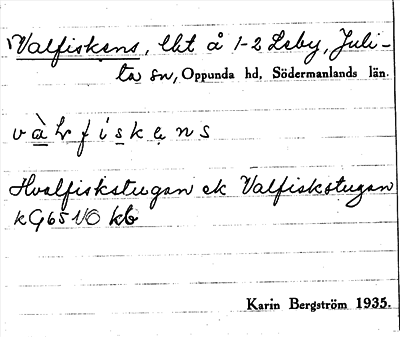 Valfiskens, lht å 1-2 Leby, Juli-
ta sn, Oppunda hd, Södermanlands län.
vàlvfiskens
Hvalfiskstugan ek Valfiskstugan
kG65NO kb
Karin Bergström 1935.